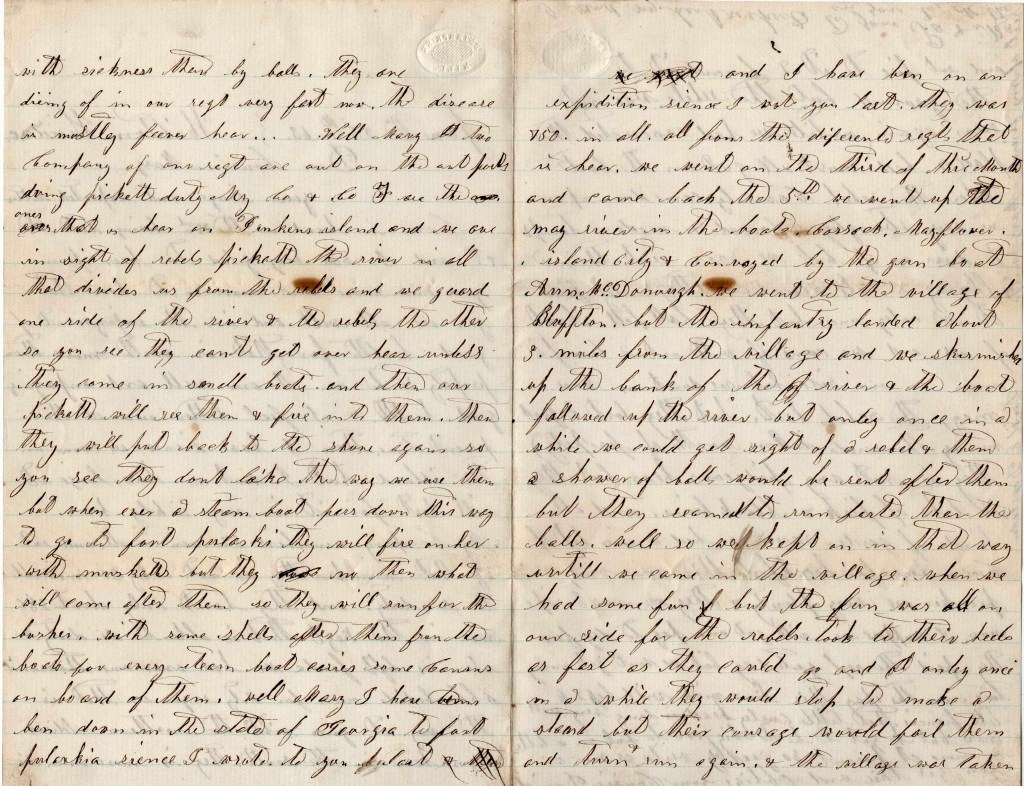 with sickness than by balls. they are
dieing of in our regt very fast now. the diseare
is mostley feever hear... Well Mary two
Company of our regt are out on the out posts
doing pickett duty My Co & Co F are the
ones that is hear on Pinkens island and we are
in sight of rebels pickett the river is all
that divides us from the rebels and we guard
one side of the river & the rebels the other
so you see they cant get over hear unless
they come in small boats. and then our
picketts will see them & fire into them. then
they will put back to the shore again so
you see they dont like the way we use them
but when ever a steam boat pass down this way
to go to fort pulaski they will fire on her
with musketts but they no then what
will come after them so they will run for the
bushes. with some shells after them from the
boats for every steam boat caries some Canons
on board of them. well Mary I have
ben down in the state of Georgia to fort
pulaskia sience I wrote. to you
and I have ben on an
expidition sience I wrot you last. they was
850. in all. all from the diferente regts that
is hear. we went on the third of this Month
and came back the 5th we went up the
may river in the boats. Cossack, Mayflower.
island City & Convoyed by the gun boat
Ann McDonough. we went to the village of
Bluffton. but the infantry landed about
3. miles from the village and we skirmishes
up the bank of the river & the boat
followed up the river but onley once in a
while we could get sight of a rebel & them
a shower of balls would be sent after them
but they seamed to run faster than the
balls. well so we kept on in that way
untill we came in the village. when we
had some fun but the fun was all on
our side for the rebels took to their heels
as fast as they could go and onley once
in a while they would stop to make a
stand but their courage would fail them
and turn & run again. & the village was taken